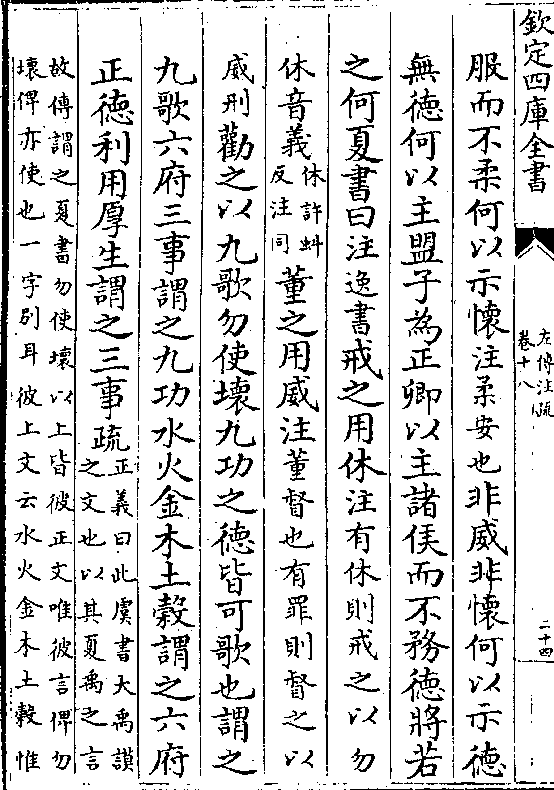 欽定四庫全書
左傳注疏
卷十八
二十四
服而不柔何以示懷注柔安也非威非懷何以示德
無德何以主盟子為正卿以主諸侯而不務德將若
之何夏書曰注逸書戒之用休注有休則戒之以勿
休音義休許虯
反注同董之用威注董督也有罪則督之以
威刑勸之以九歌勿使壞九功之德皆可歌也謂之
九歌六府三事謂之九功水火金木土穀謂之六府
正德利用厚生謂之三事疏正義曰此虞書大禹謨
之文也以其夏禹之言
故傳謂之夏書勿使壞以上皆彼正文唯彼言俾勿
壞俾亦使也一字别耳彼上文云水火金木土穀惟